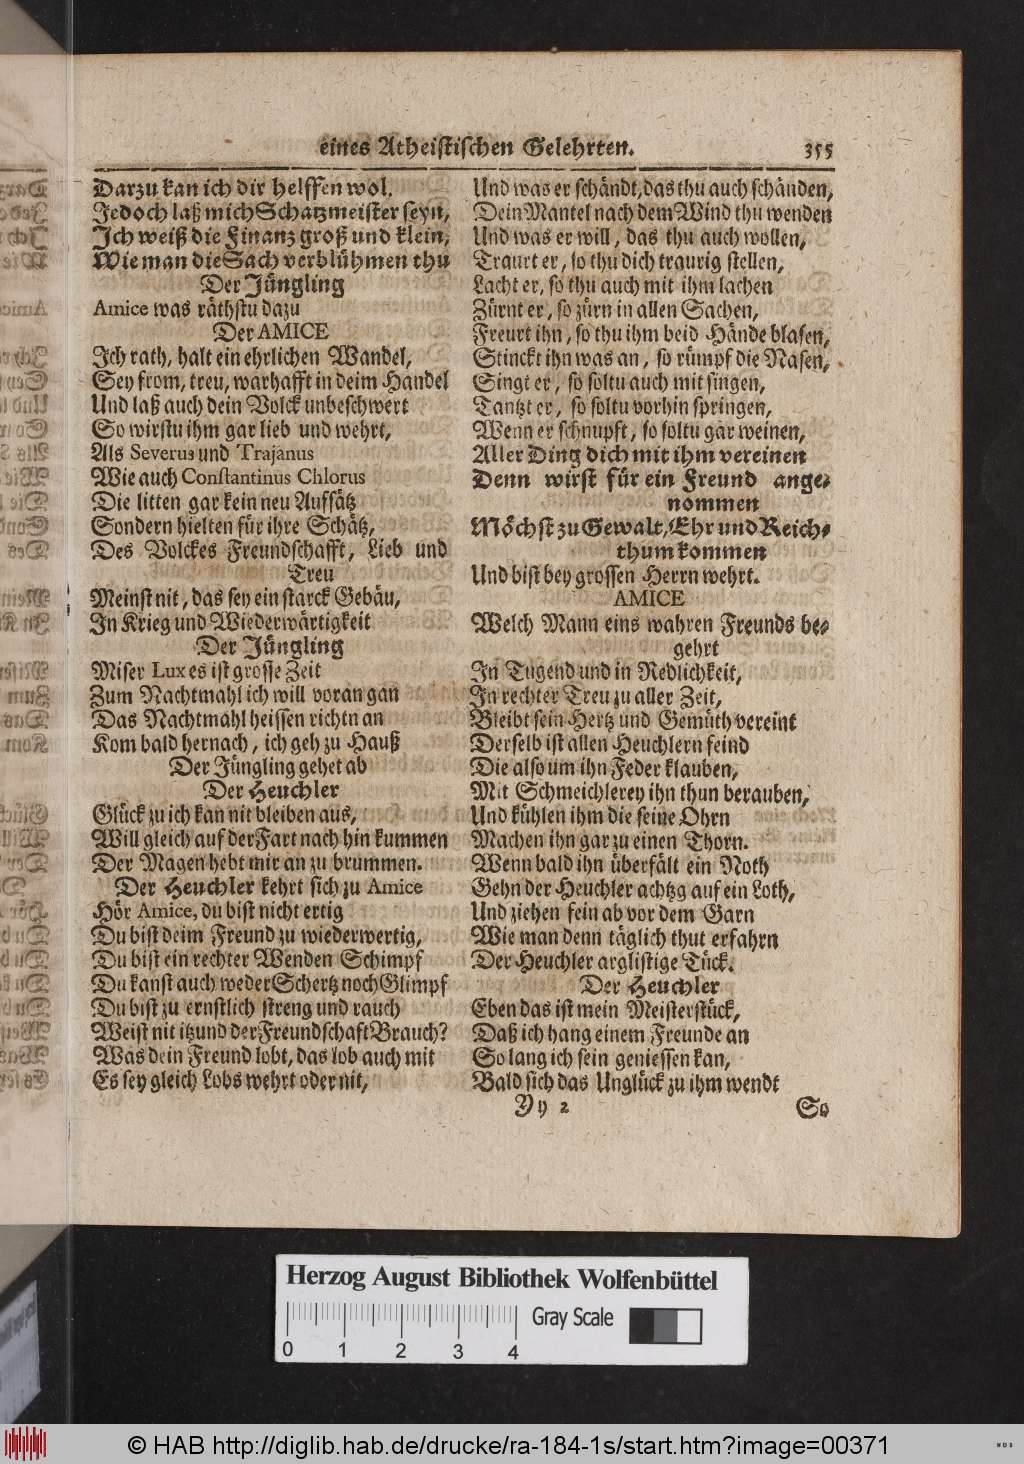 eines Atheistischen Gelehrten. 355
Darzu kan ich dir helffen wol.
Jedoch laß mich Schatzmeister seyn,
Ich weiß die Finanz groß und klein,
Wie man die Sach verblühmen thu
Der Jüngling
Amice was räthstu dazu
Der AMICE
Ich rath, halt ein ehrlichen Wandel,
Sey from, treu, warhafft in deim Handel
Und laß auch dein Volck unbeschwert
So wirstu ihm gar lieb und wehrt,
Als Severus und Trajanus
Wie auch Constantinus Chlorus
Die litten gar kein neu Auffsätz
Sondern hielten für ihre Schätz,
Des Volckes Freundschafft, Lieb und
Treu
Meinst nit, das sey ein starck Gebäu,
In Krieg und Wiederwärtigkeit
Der Jüngling
Miser Lux es ist grosse Zeit
Zum Nachtmahl ich will voran gan
Das Nachtmahl heissen richtn an
Kom bald hernach, ich geh zu Hauß
Der Jüngling gehet ab
Der Heuchler
Glück zu ich kan nit bleiben aus,
Will gleich auf der Fart nach hin kummen
Der Magen hebt mir an zu brummen.
Der Heuchler kehrt sich zu Amice
Hör Amice, du bist nicht ertig
Du bist deim Freund zu wiederwertig,
Du bist ein rechter Wenden Schimpf
Du kanst auch weder Schertz noch Glimpf
Du bist zu ernstlich streng und rauch
Weist nit itzund der Freundschaft Brauch?
Was dein Freund lobt, das lob auch mit
Es sey gleich Lobs wehrt oder nit,
Und was er schändt, das thu auch schänden,
Dein Mantel nach dem Wind thu wenden
Und was er will, das thu auch wollen,
Traurt er, so thu dich traurig stellen,
Lacht er, so thu auch mit ihm lachen
Zürnt er, so zürn in allen Sachen,
Freurt ihn, so thu ihm beid Hände blasen,
Stinckt ihn was an, so rümpf die Nasen,
Singt er, so soltu auch mit singen,
Tantzt er, so soltu vorhin springen,
Wenn er schnupft, so soltu gar weinen,
Aller Ding dich mit ihm vereinen
Denn wirst für ein Freund ange-
nommen
Möchst zu Gewalt, Ehr und Reich-
thum kommen
Und bist bey grossen Herrn wehrt.
AMICE
Welch Mann eins wahren Freunds be-
gehrt
In Tugend und in Redlichkeit,
In rechter Treu zu aller Zeit,
Bleibt sein Hertz und Gemüth vereint
Derselb ist allen Heuchlern feind
Die also um ihn Feder klauben,
Mit Schmeichlerey ihn thun berauben,
Und kühlen ihm die seine Ohrn
Machen ihn gar zu einen Thorn.
Wenn bald ihn überfält ein Noth
Gehn der Heuchler achtzg auf ein Loth,
Und ziehen fein ab vor dem Garn
Wie man denn täglich thut erfahrn
Der Heuchler arglistige Tück.
Der Heuchler
Eben das ist mein Meisterstück,
Daß ich hang einem Freunde an
So lang ich sein geniessen kan,
Bald sich das Unglück zu ihm wendt
Yy 2 So
Herzog August Bibliothek Wolfenbüttel
Gray Scale
0 1 2 3 4
© HAB http://diglib.hab.de/drucke/ra-184-1s/start.htm?image=00371